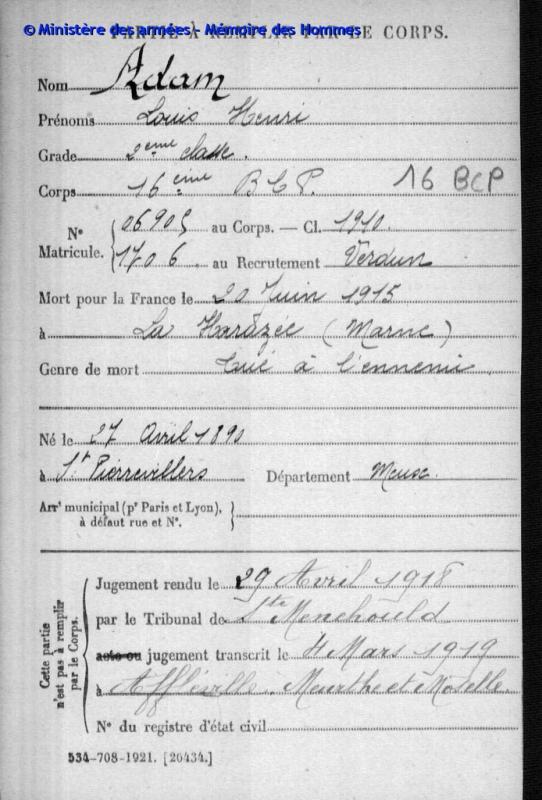 © Ministère des armées - Mémoire des Hommes
PARTIE À REMPLIR PAR LE CORPS.
Nom Adam
Prénoms Louis Henri
Grade 2ème classe.
Corps 16 ème B C P. 16 BCP
N° Matricule. { 06905 au Corps. — Cl. 1910.
1706. au Recrutement Verdun
Mort pour la France le 20 Juin 1915
à La Harazée (Marne)
Genre de mort Tué à l'ennemi
Né le 27 Avril 1890
à St Pierrevillers Département Meuse.
Arrt municipal (pr Paris et Lyon), à défaut rue et N°. }
Cette partie n'est pas à remplir par le Corps.
Jugement rendu le 29 Avril 1918
par le Tribunal de Ste Menehould
acte ou jugement transcrit le 4 Mars 1919
à Affléville Meurthe et Moselle.
N° du registre d'état civil
534-708-1921. [26434.]